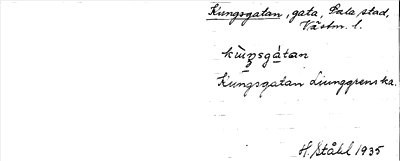 Kungsgatan, gata, Sala stad,
Västm. l.
kùŋsgàtan
Kungsgatan Ljunggrenska.
H. Ståhl 1935